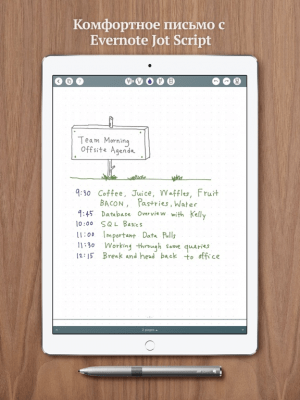 Комфортное письмо с
Evernote Jot Script
Team Morning
Offsite Agenda
9:30 Coffee, Juice, Waffles, Fruit
BACON, Pastries, Water
9:45 Database Overview with Kelly
10:00 SQL Basics
11:00 Important Data Pulls
11:30 Working through some quaries
12:15 Break and head back to office